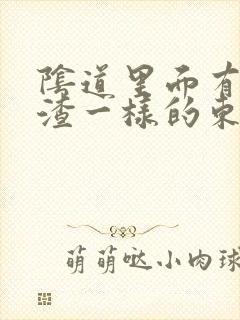 陰道里面有
渣一樣的東
萌萌哒小肉球